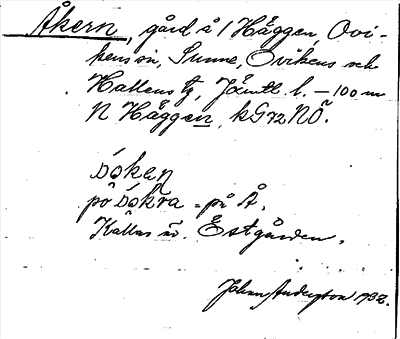 Åkern, gård å l Häggen, Ovi-
kens sn, Sunne, Ovikens och
Hallens tg, Jämtl. l. – 100 m
N Häggen, kG72NÖ.
såken
på såkra = på Å.
Kallas äv. Estgården.
Johan Anderzton 1932.